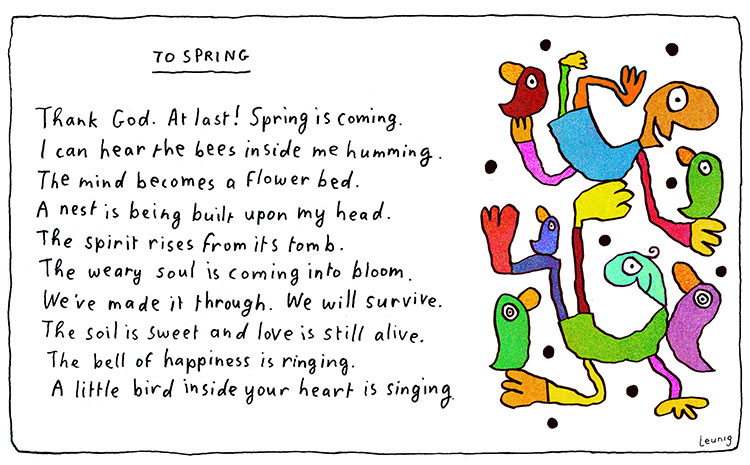 TO SPRING
Thank God. At last! Spring is coming.
I can hear the bees inside me humming.
The mind becomes a flower bed.
A nest is being built upon my head.
The spirit rises from its tomb.
The weary soul is coming into bloom.
We've made it through. We will survive.
The soil is sweet and love is still alive.
The bell of happiness is ringing.
A little bird inside your heart is singing.
Leunig